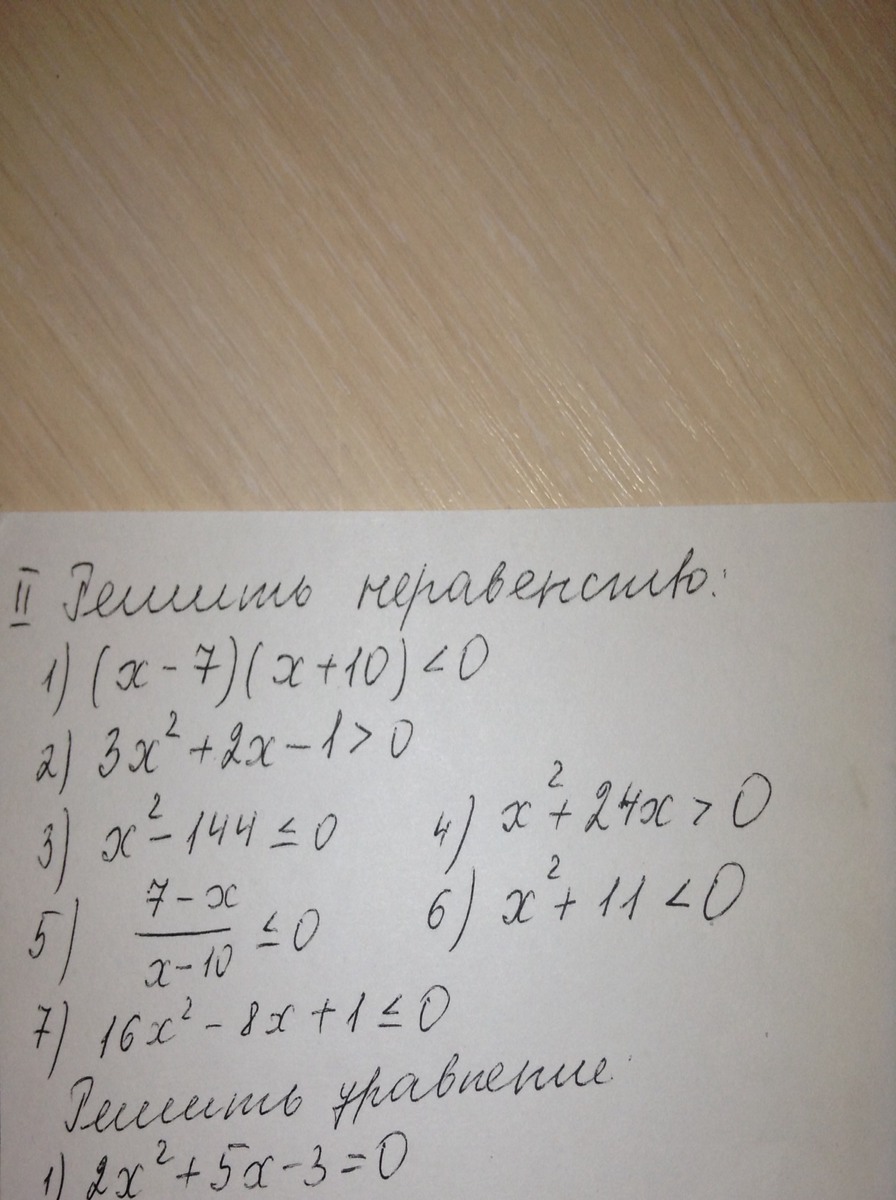 II Решить неравенство:
1) (x - 7)(x + 10) < 0
2) 3x² + 2x - 1 > 0
3) x² - 144 ≤ 0
4) x² + 24x > 0
5) (7 - x)/(x - 10) ≤ 0
6) x² + 11 < 0
7) 16x² - 8x + 1 ≤ 0
Решить уравнение:
1) 2x² + 5x - 3 = 0